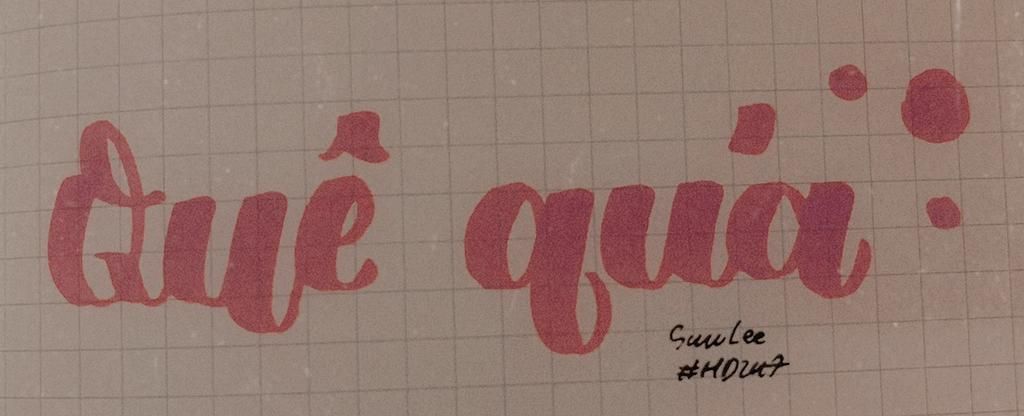 Quê quá
SuuLee
#HD247